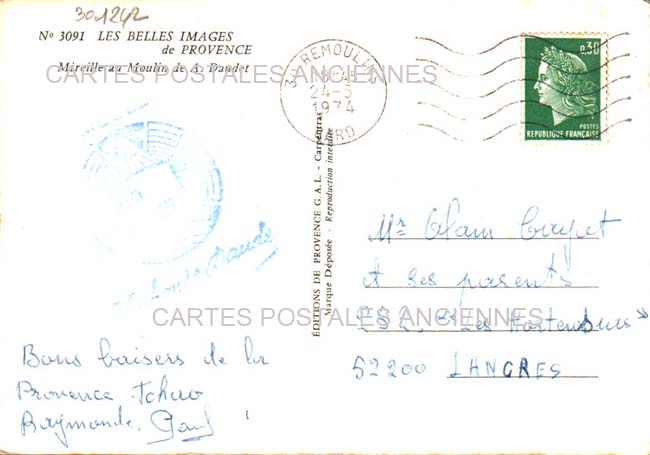 301242
Nº 3091 LES BELLES IMAGES
de PROVENCE
Mireille au Moulin de A. Daudet
CARTES POSTALES ANCIENNES
REMOULINS
24-5
1974
GARD
0,30
POSTES
REPUBLIQUE FRANÇAISE
ÉDITIONS DE PROVENCE G.A.L. - Carpentras
Marque Déposée - Reproduction interdite
Mr Alain
et ses parents
"Les Hortensias"
52200 LANGRES
CARTES POSTALES ANCIENNES
Bons baisers de la
Provence. Tchao
Raymonde. Paul